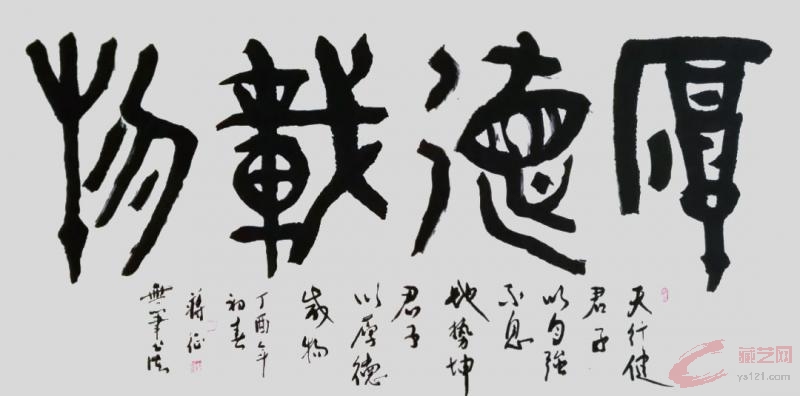 厚德載物
天行健
君子
以自強
不息
地勢坤
君子
以厚德
載物
丁酉年
初春
蔣征
無筆
藏艺网
ys121.com